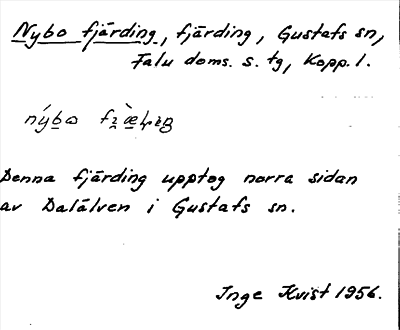 Nybo fjärding, fjärding, Gustafs sn,
Falu doms. s. tg, Kopp. l.
nýbo
Denna fjärding upptog norra sidan
av Dalälven i Gustafs sn.
Inge Kvist 1956.